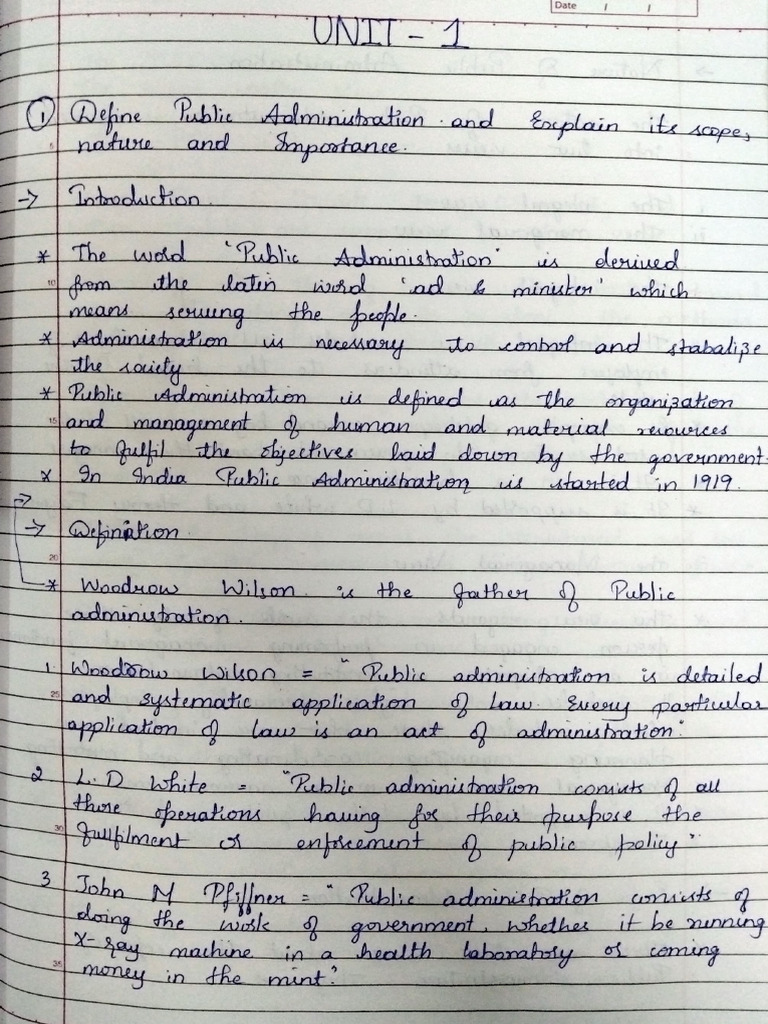 Date / /
UNIT - 1
① Define Public Administration and Explain its scope,
nature and Importance.
-> Introduction
* The word 'Public Administration' is derived
from the latin word 'ad & minister' which
means serving the people.
* Administration is necessary to control and stabalize
the society
* Public Administration is defined as the organization
and management of human and material resources
to fulfil the objectives laid down by the government.
* In India Public Administration is started in 1919.
->
-> Definition
* Woodrow Wilson is the father of Public
administration.
1. Woodrow Wilson = "Public administration is detailed
and systematic application of Law. Every particular
application of law is an act of administration."
2 L.D White = "Public administration consists of all
those operations having for their purpose the
fullfilment or enforcement of public policy"
3 John M Pfiffner = "Public administration consists of
doing the work of government, whether it be running
X-ray machine in a health laboratory or coming
money in the mint."